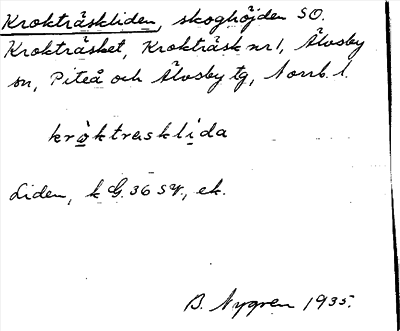 Krokträskliden, skoghöjden SO.
Krokträsket, Krokträsk nr 1, Älvsby
sn, Piteå och Älvsby tg, Norrb. l.
kròktrasklida
Liden, k G. 36 SV., ek.
B. Nygren 1935.